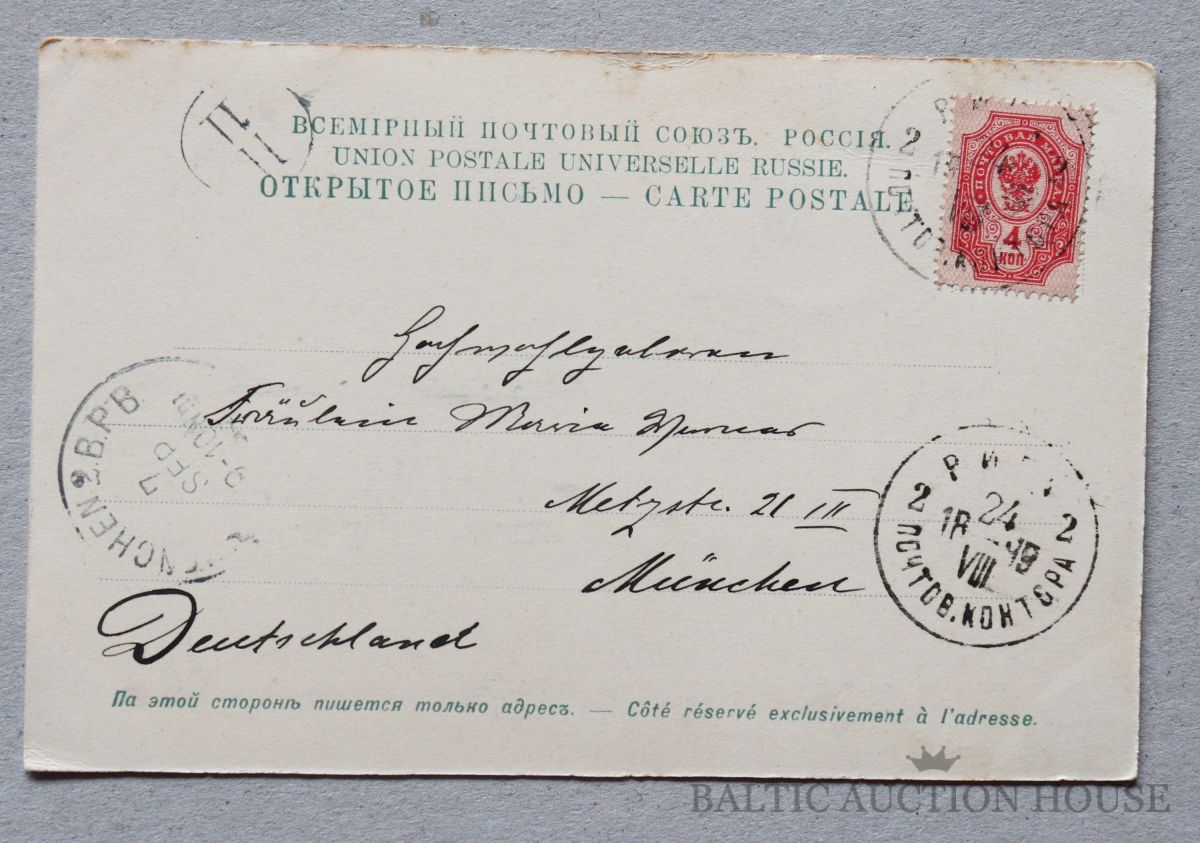 ВСЕМІРНЫЙ ПОЧТОВЫЙ СОЮЗЪ. РОССІЯ.
UNION POSTALE UNIVERSELLE RUSSIE.
ОТКРЫТОЕ ПИСЬМО — CARTE POSTALE.
ПОЧТОВАЯ МАРКА
4
КОП
2
ПОЧТОВ. К
Hochwohlgeboren
Fräulein Maria
Metzstr. 21 III
München
Deutschland
NCHEN 2 B.P.B
7
SEP
9-10
РИГА
24
18 99
VIII
2 2
ПОЧТОВ. КОНТОРА
На этой сторонѣ пишется только адресъ. — Côté réservé exclusivement à l'adresse.
BALTIC AUCTION HOUSE